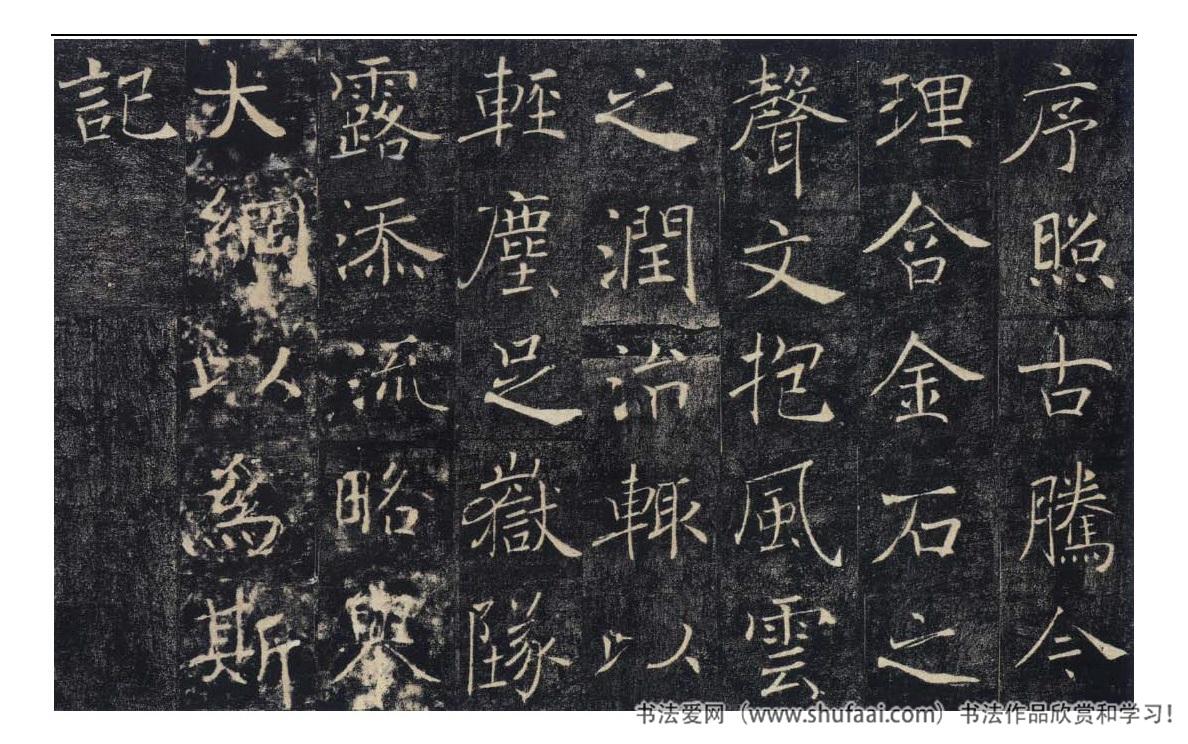 序照古騰今
理含金石之
聲文抱風雲
之潤治輒以
輕塵足嶽墜
露添流略舉
大綱以為斯
記
书法爱网（www.shufaai.com）书法作品欣赏和学习！